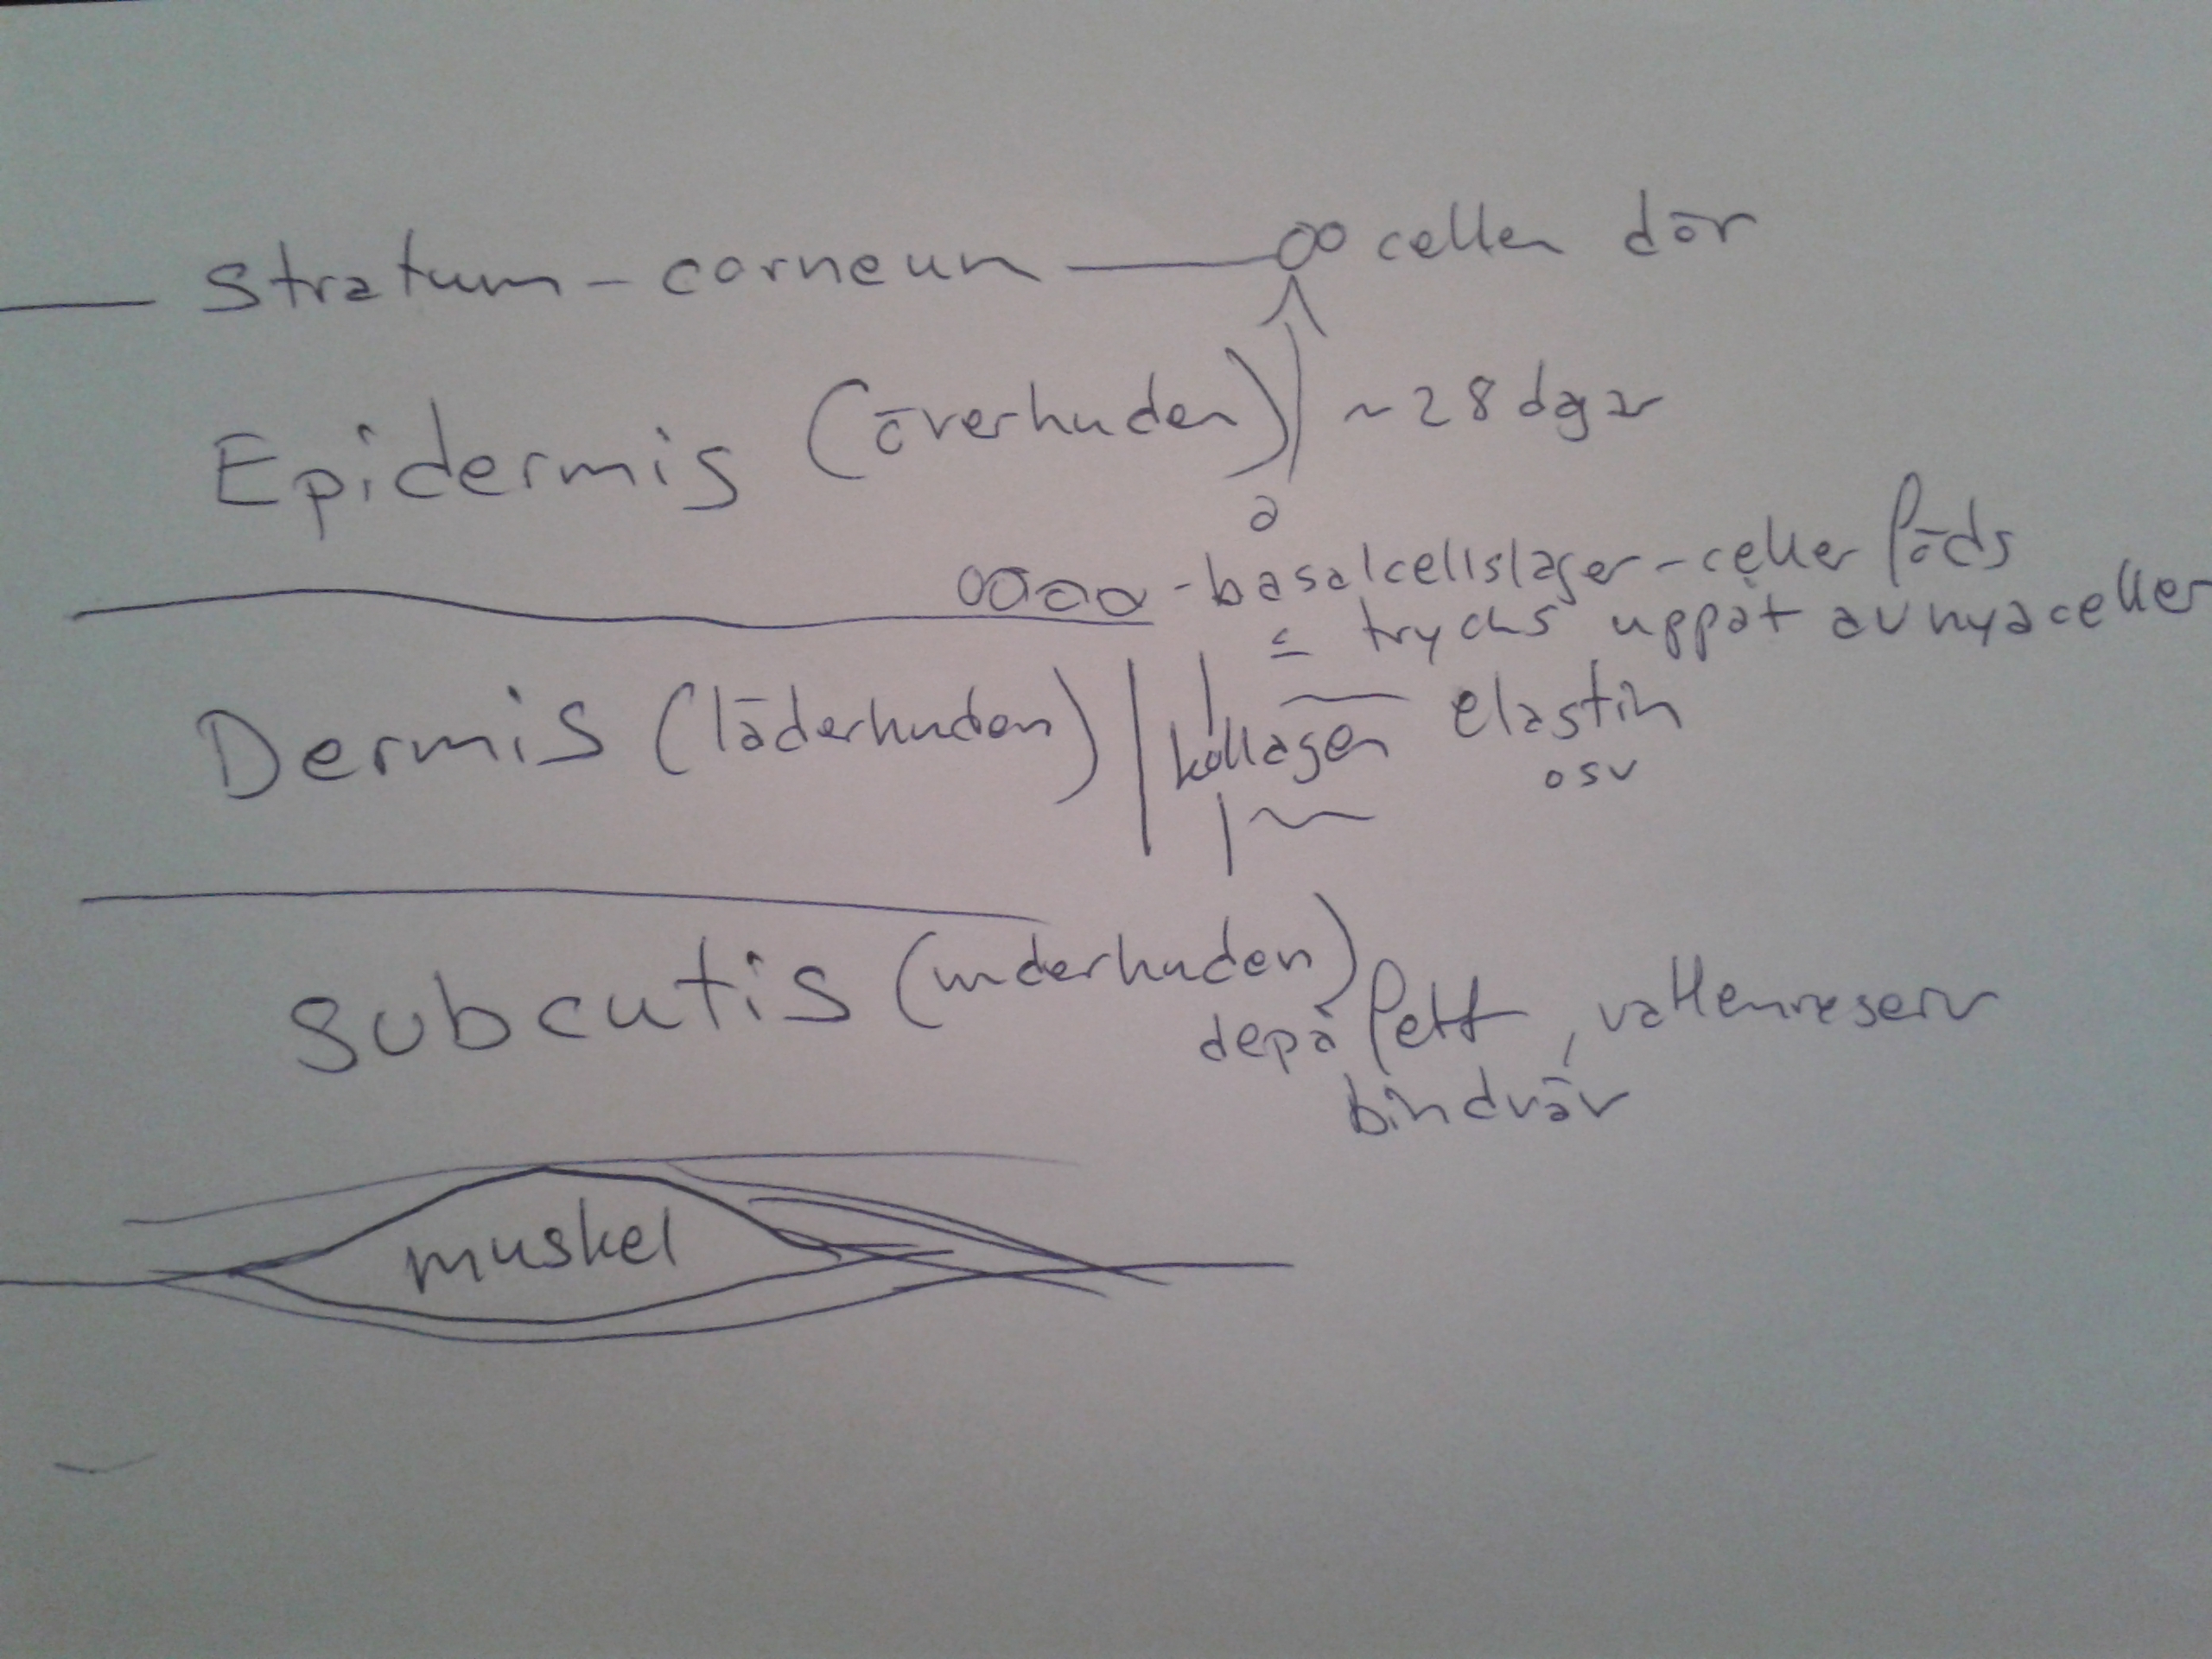 Stratum-corneum cellen dör
Epidermis (överhuden) ~28 dgar
-basalcellslager-celler föds
= trycks uppåt av nya celler
Dermis (läderhuden) kollagen elastin
osv
Subcutis (underhuden)
depå fett, vattenreserv
bindväv
muskel